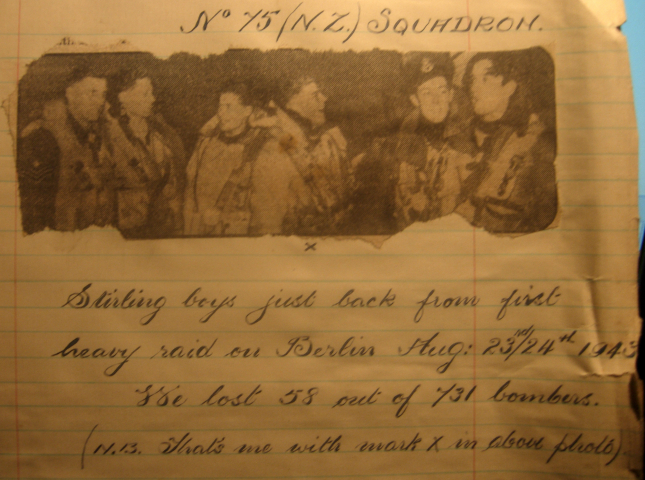 Nº 75 (N.Z.) SQUADRON.
x
Stirling boys just back from first
heavy raid on Berlin Aug: 23rd/24th 1943
We lost 58 out of 731 bombers.
(N.B. That's me with mark X in above photo)